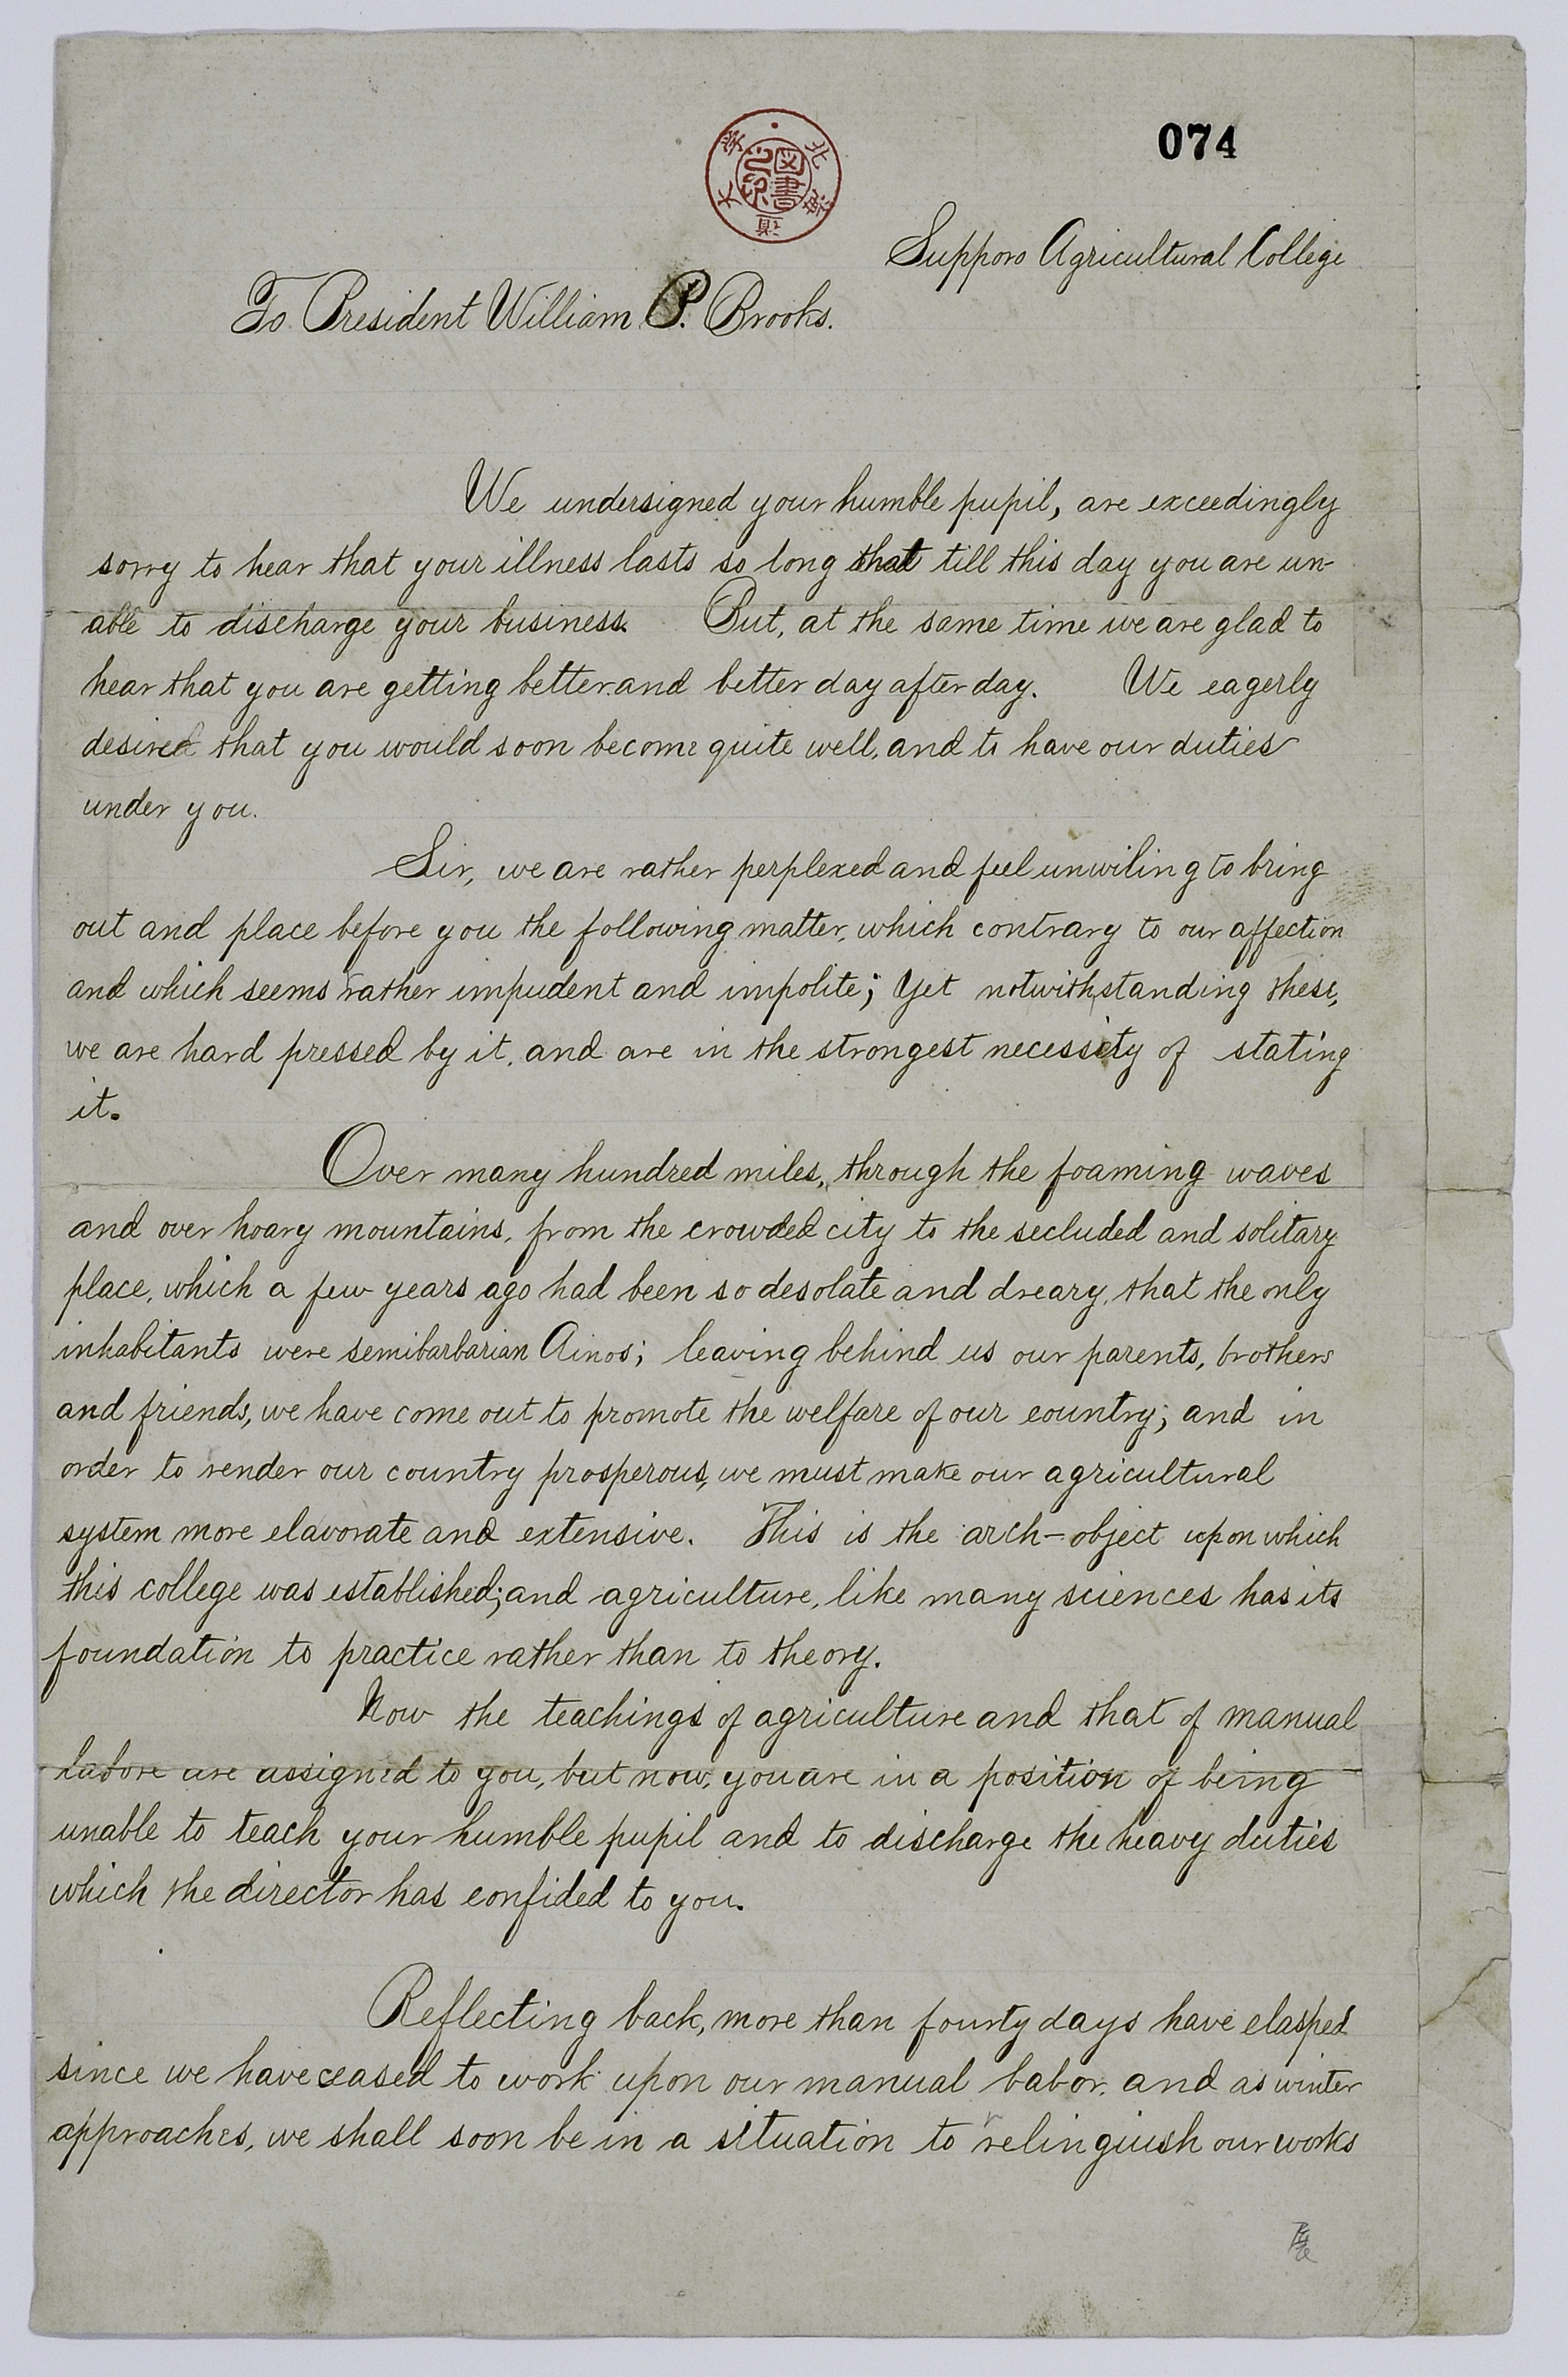 074
北海道大学
図書之印
Supporo Agricultural College
To President William P. Brooks.
We undersigned your humble pupil, are exceedingly
sorry to hear that your illness lasts so long that till this day you are un-
able to discharge your business. But, at the same time we are glad to
hear that you are getting better and better day after day. We eagerly
desired that you would soon become quite well, and to have our duties
under you.
Sir, we are rather perplexed and feel unwiling to bring
out and place before you the following matter, which contrary to our affection
and which seems rather impudent and impolite; Yet notwithstanding these,
we are hard pressed by it, and are in the strongest necessity of stating
it.
Over many hundred miles, through the foaming waves
and over hoary mountains, from the crowded city to the secluded and solitary
place, which a few years ago had been so desolate and dreary, that the only
inhabitants were semibarbarian Ainos; leaving behind us our parents, brothers
and friends, we have come out to promote the welfare of our country; and in
order to render our country prosperous, we must make our agricultural
system more elavorate and extensive. This is the arch-object upon which
this college was established; and agriculture, like many sciences has its
foundation to practice rather than to theory.
Now the teachings of agriculture and that of manual
labore are assigned to you, but now, you are in a position of being
unable to teach your humble pupil and to discharge the heavy duties
which the director has confided to you.
Reflecting back, more than fourty days have elasped
since we have ceased to work upon our manual babor, and as winter
approaches, we shall soon be in a situation to relinguish our works